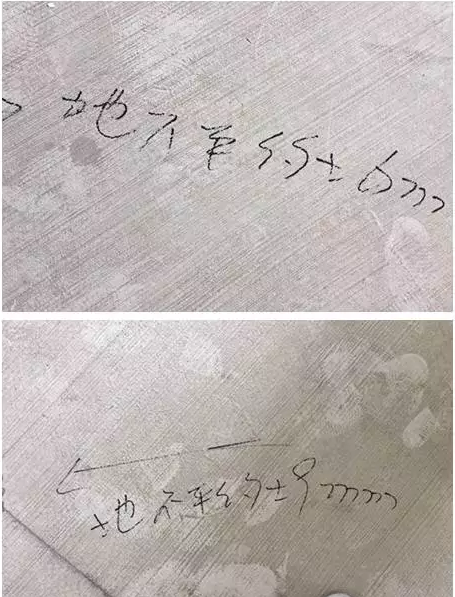 地不平约±6mm
地不平约±9mm